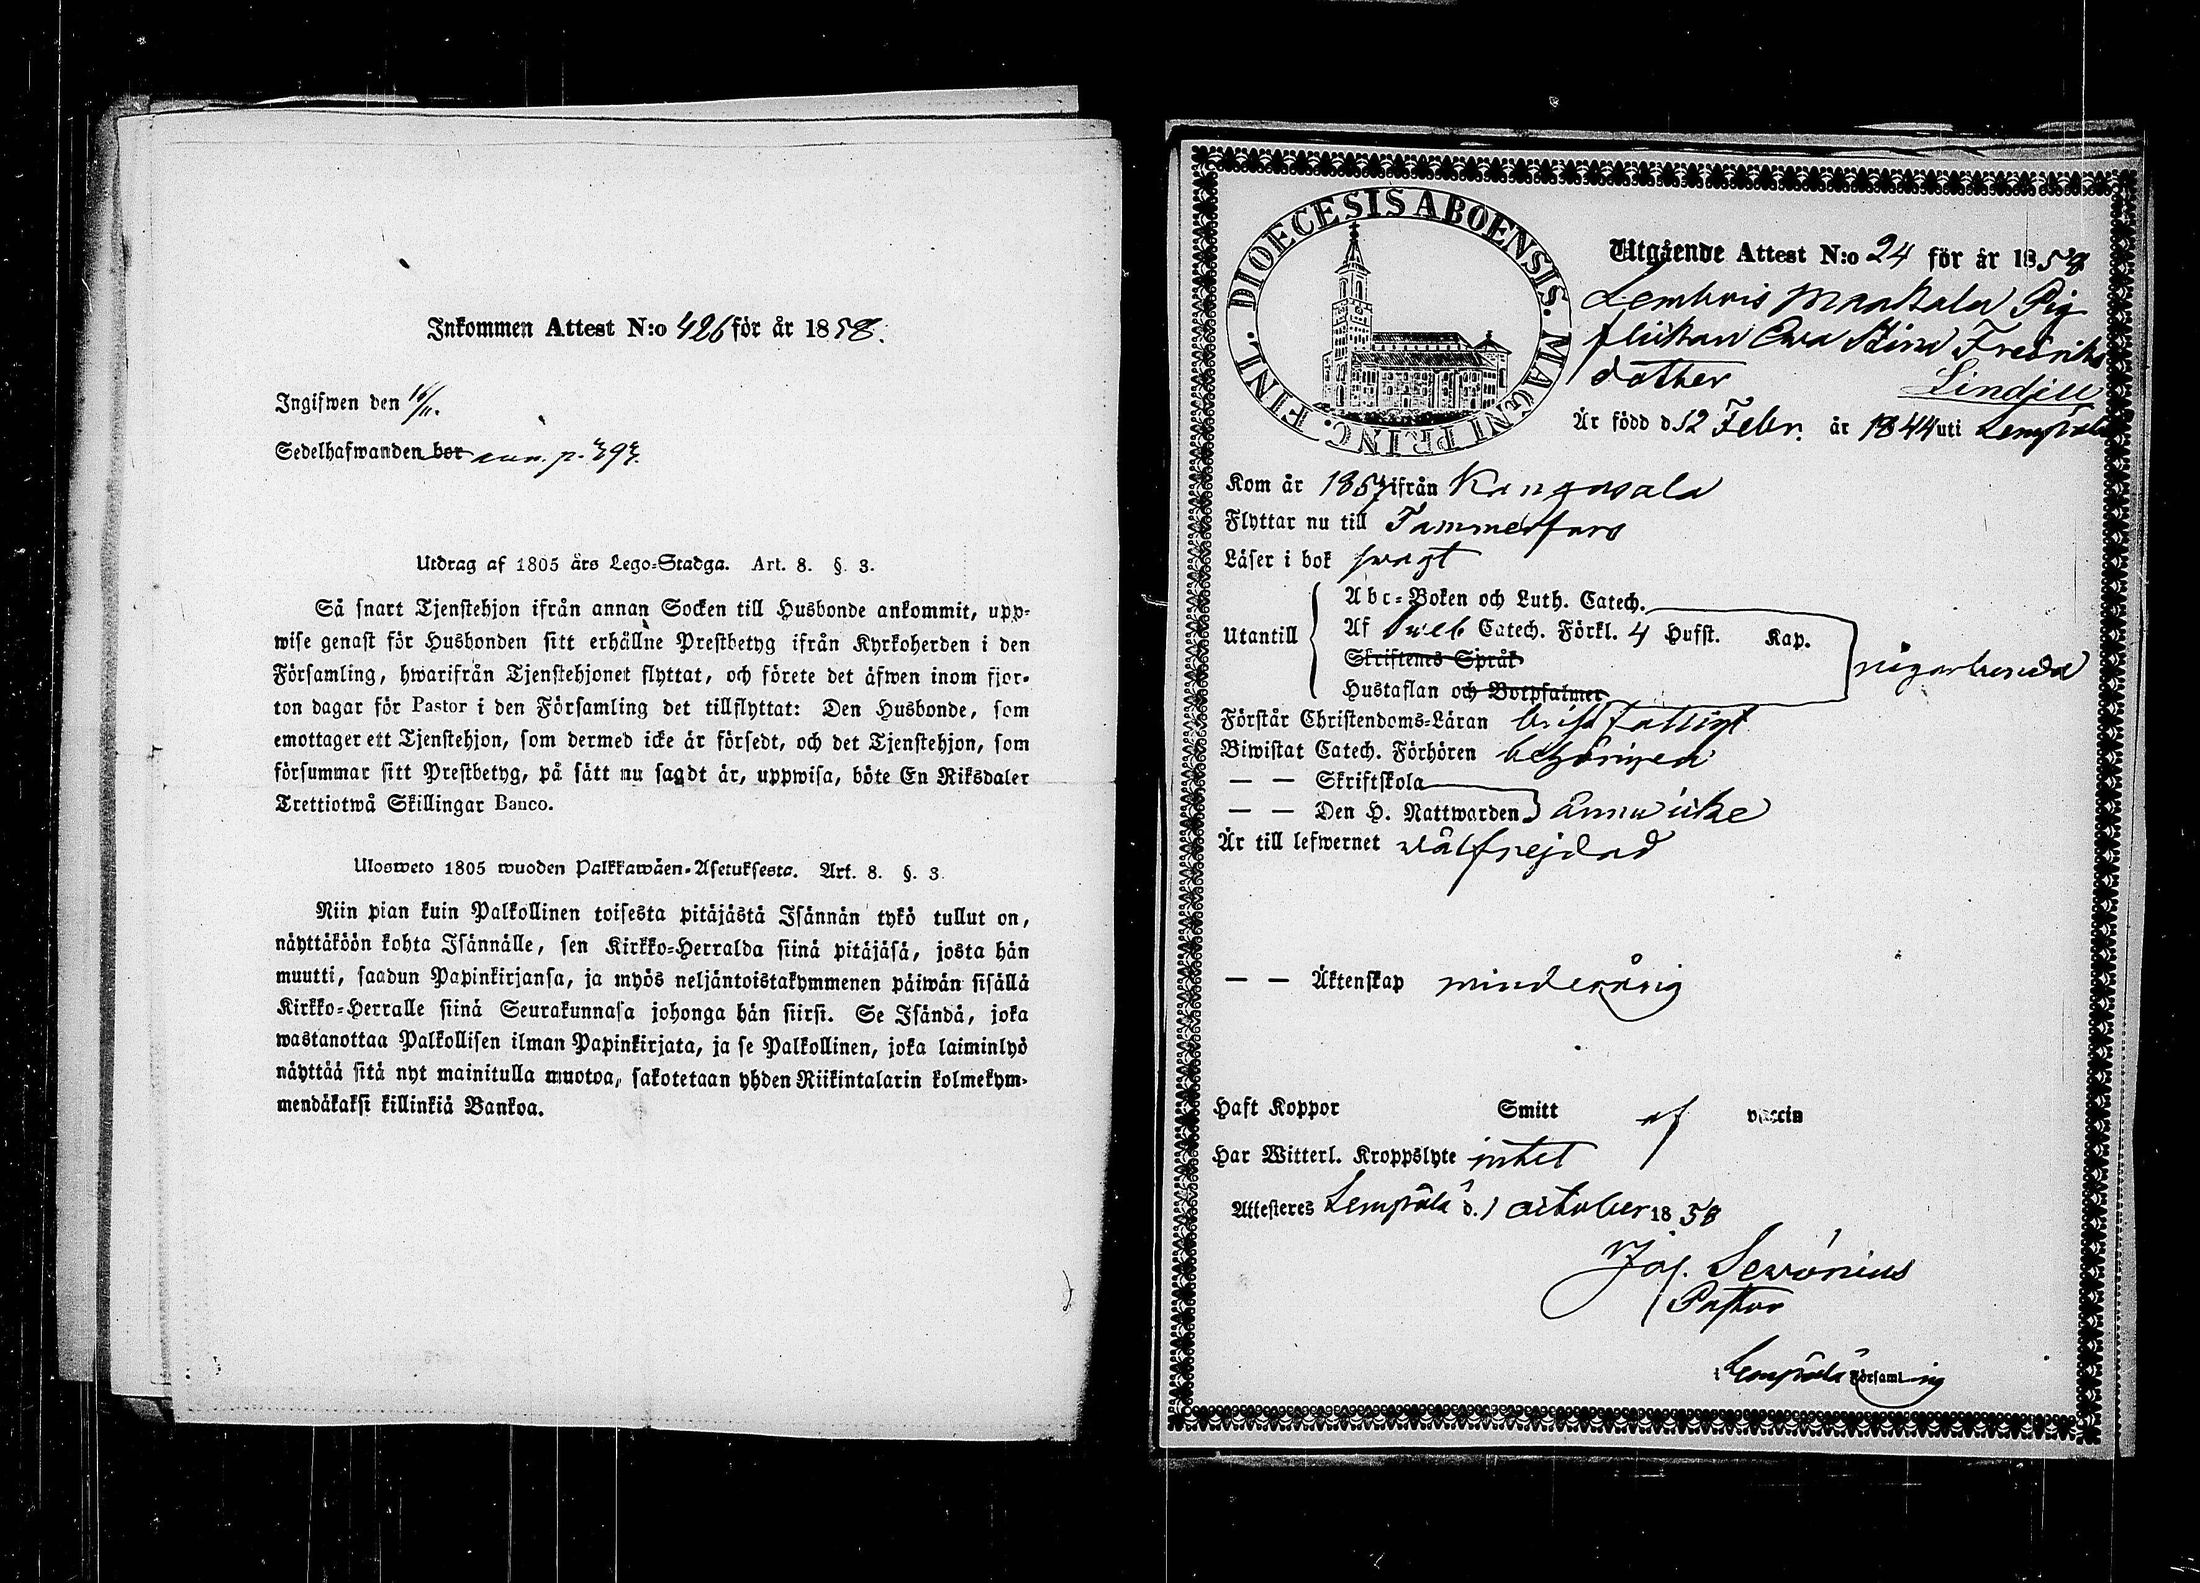 Inkommen Attest N:o 426 för år 1858.
Ingifwen den 16/11.
Sedelhafwanden bor ann. p. 393.
Utdrag af 1805 års Lego-Stadga. Art. 8. §. 3.
Så snart Tjenstehjon ifrån annan Socken till Husbonde ankommit, upp-
wise genast för Husbonden sitt erhållne Prestbetyg ifrån Kyrkoherden i den
Församling, hwarifrån Tjenstehjonet flyttat, och förete det äfwen inom fjor-
ton dagar för Pastor i den Församling det tillflyttat: Den Husbonde, som
emottager ett Tjenstehjon, som dermed icke är försedt, och det Tjenstehjon, som
försummar sitt Prestbetyg, på sätt nu sagdt är, uppwisa, böte En Riksdaler
Trettiotwå Skillingar Banco.
Ulosweto 1805 wuoden Palkkawäen-Asetuksesta. Art. 8. §. 3.
Niin pian kuin Palkollinen toisesta pitäjästä Isännän tykö tullut on,
näyttäköön kohta Isännälle, sen Kirkko-Herralda siinä pitäjäsä, josta hän
muutti, saadun Papinkirjansa, ja myös neljäntoistakymmenen päiwän sisällä
Kirkko-Herralle siinä Seurakunnasa johonga hän siirsi. Se Isändä, joka
wastanottaa Palkollisen ilman Papinkirjata, ja se Palkollinen, joka laiminlyö
näyttää sitä nyt mainitulla muotoa, sakotetaan yhden Riikintalarin kolmekym-
mendäkaksi killinkiä Bankoa.
DIOECESIS ABOENSIS. MAGNI PRINC. FINL.
Utgående Attest N:o 24 för år 1858
Lembois Mantala Pig
flickan Eva Stina Fredriks
dotter Lindell
Är född d 12 Febr. år 1844 uti Lempäälä
Kom år 1857 ifrån Kangasala
Flyttar nu till Tammerfors
Läser i bok swagt
Utantill
Abc-Boken och Luth. Catech.
Af Sweb Catech. Förkl. 4 Hufst. Kap.
Skriftenes Språk
Hustaflan och Botpsalmer
någorlunda
Förstår Christendoms-Läran bristfälligt
Biwistat Catech. Förhören behörigen
— — Skriftskola
— — Den H. Nattwarden ännu icke
Är till lefwernet wälfrejdad
— — Äktenskap minderårig
Haft Koppor Smitt af vaccin
Har Witterl. Kroppslyte intet
Attesteres Lempäälä d. 1 October 1858
Joh. Sevonius
Pastor
i Lempäälä Församling